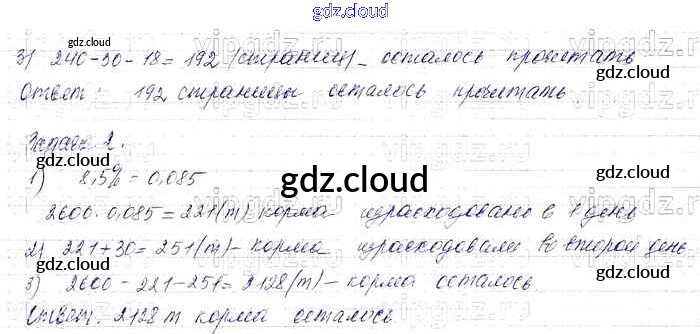 gdz.cloud
3) 240-30-18=192 (страниц) - осталось прочитать
Ответ: 192 страницы осталось прочитать
Задача 2.
1) 8,5%=0,085
2600·0,085=221(т) корма израсходовано в 1 день
2) 221+30=251(т)- корма израсходовали во второй день
3) 2600-221-251=2128(т)- корма осталось.
Ответ: 2128 т корма осталось.
gdz.cloud
gdz.cloud
gdz.cloud
gdz.cloud
gdz.cloud
gdz.cloud
gdz.cloud